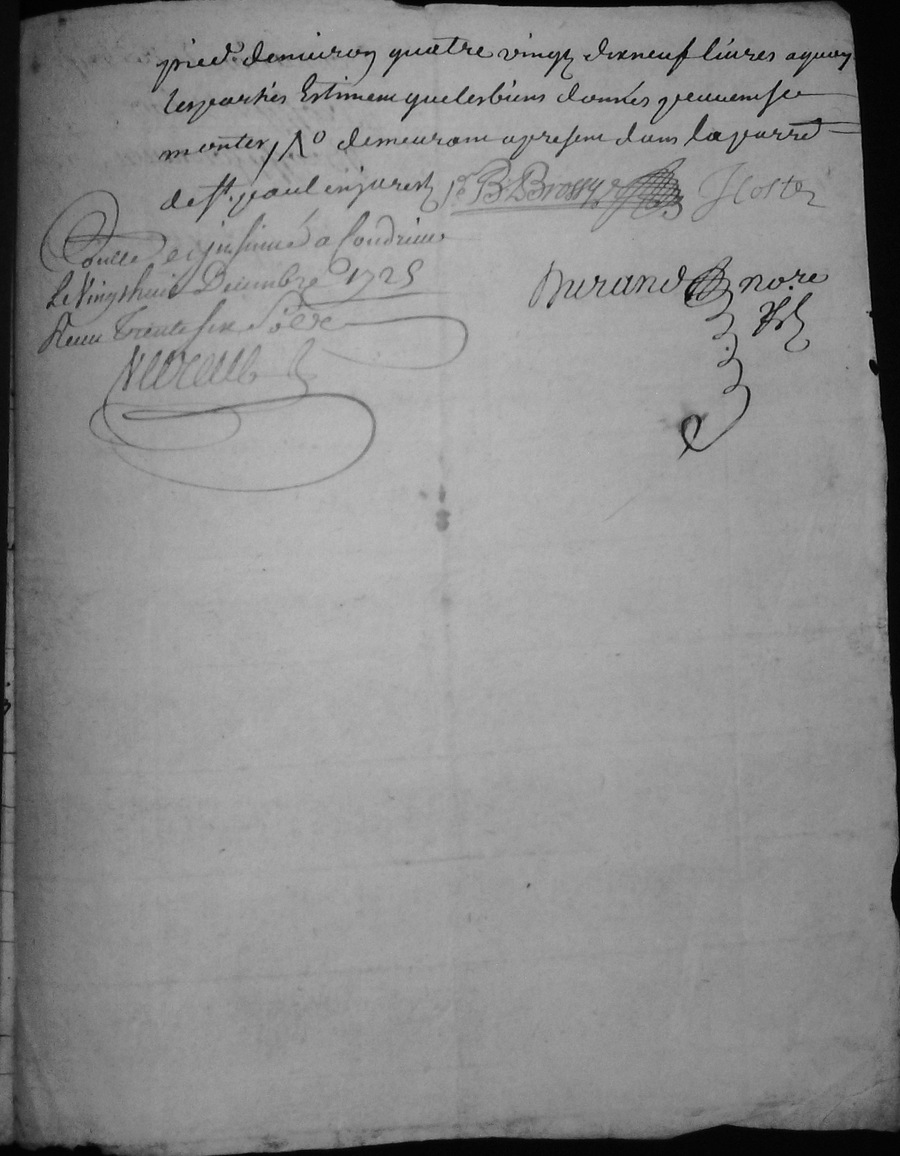 pied denviron quatre vingt dixneuf livres a quoy
les parties Estiment que les biens donnés peuvent se
monter, No demeurant apresent dans la parre
de st. paul enjarest B Brossy JCoste
Coulle et insinué a Condrieu
Le Vingt huit Decembre 1725 Durand nore
Receu Trente six Sols